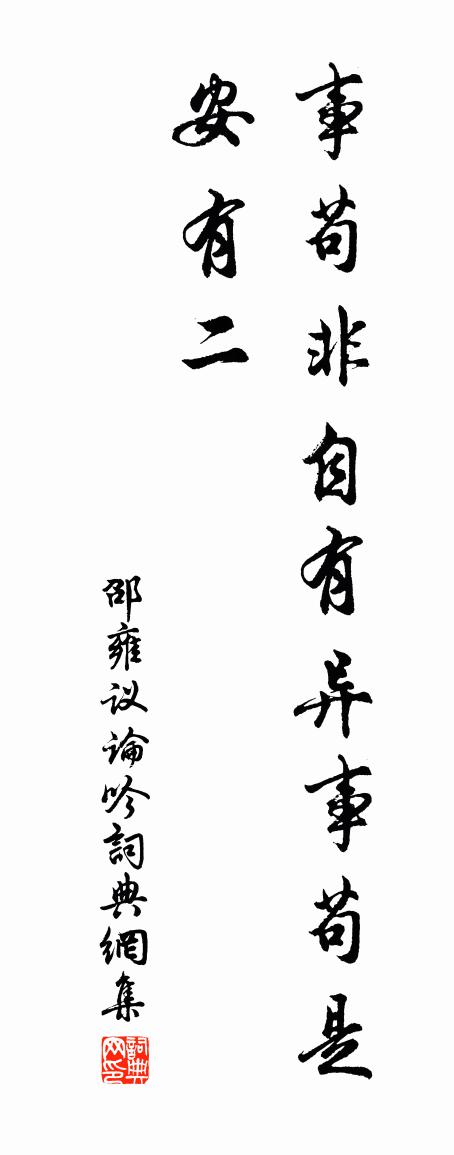 事苟非自有异事苟是
安有二
邵雍议論吟詞典網集
詞典
网印